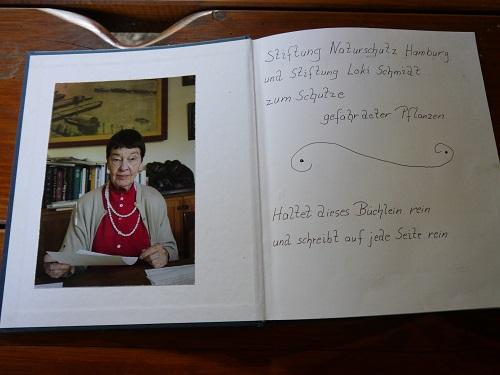 Stiftung Naturschutz Hamburg
und Stiftung Loki Schmidt
zum Schutze
gefährdeter Pflanzen
Haltet dieses Büchlein rein
und schreibt auf jede Seite rein